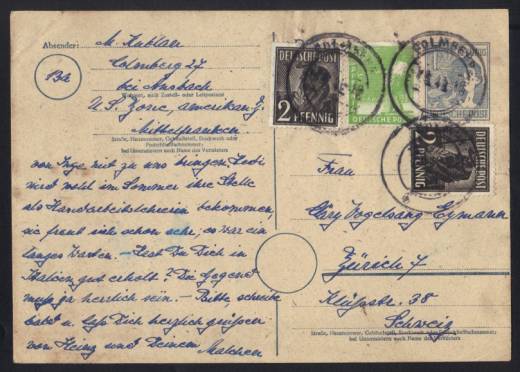 Absender:
M. Kübler
Colmberg 27
13a
bei Ansbach
Wohnort, auch Zustell- oder Leitpostamt
U.S. Zone, amerikan.
Mittelfranken
Straße, Hausnummer, Gebäudeteil, Stockwerk oder
Postschließfachnummer;
bei Untermietern auch Name des Vermieters
DEUTSCHE POST
2 PFENNIG
DEUTSCHE POST
COLMBERG
DEUTSCHE POST
DEUTSCHE POST
2 PFENNIG
von Inge mit zu uns bringen.
wird wohl im Sommer ihre Stelle
als Handarbeitslehrerin bekommen,
sie freut sich schon sehr, es war ein
langes Warten. – Hast Du Dich in
Italien gut erholt? Die Gegend
muß ja herrlich sein. – Bitte schreibe
bald u. laß Dich herzlich grüßen
von Heinz und Deinem
Malchen
Frau
Vogelsang Eymann
Zürich 7
38
Schweiz
Straße, Hausnummer, Gebäudeteil, Stockwerk oder Postschließfachnummer;
bei Untermietern auch Name des Vermieters